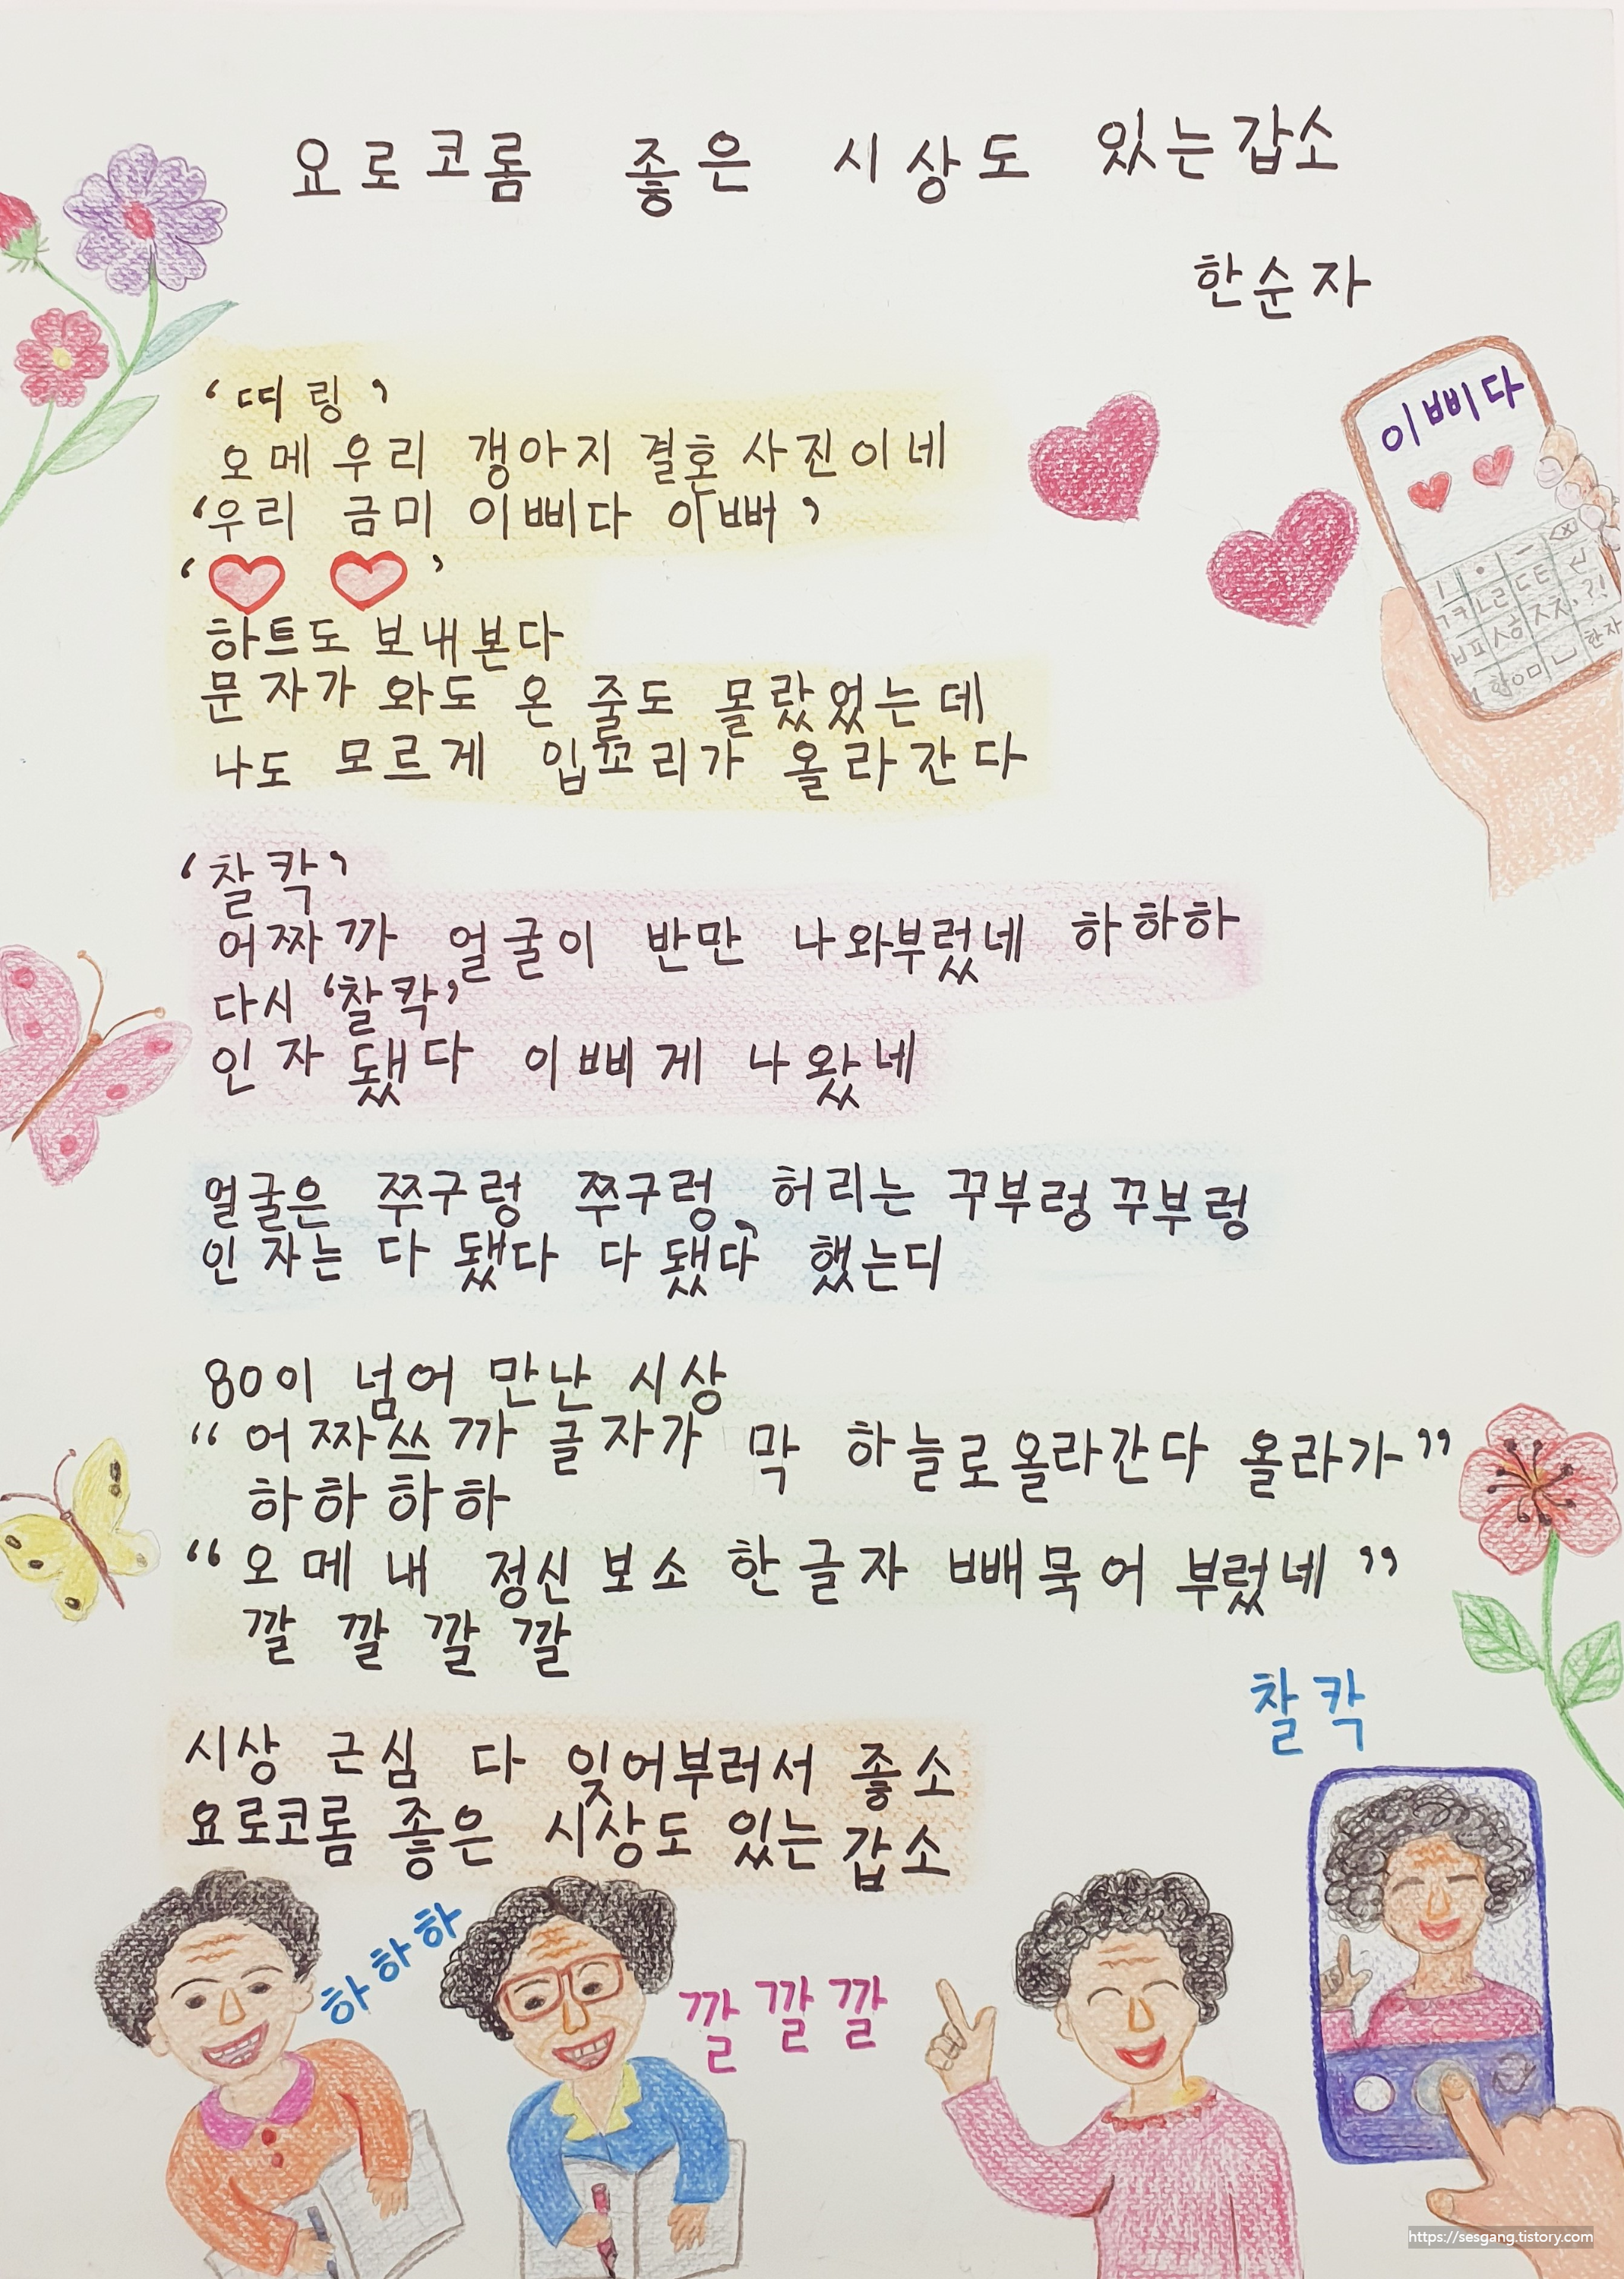 요로코롬 좋은 시상도 있는갑소
한순자
‘띠링’
오메 우리 갱아지 결혼사진이네
‘우리 금미 이삐다 이뻐’
‘♡ ♡’
하트도 보내본다
문자가 와도 온 줄도 몰랐었는데
나도 모르게 입꼬리가 올라간다
이삐다
ㅣ · ㅡ
ㄱㅋ ㄴㄹ ㄷㅌ
ㅂㅍ ㅅㅎ ㅈㅊ .?!
한자
ㅇㅁ
‘찰칵’
어짜까 얼굴이 반만 나와부렀네 하하하
다시 ‘찰칵’
인자 됐다 이삐게 나왔네
얼굴은 쭈구렁 쭈구렁, 허리는 꾸부렁꾸부렁
인자는 다 됐다 다 됐다 했는디
80이 넘어 만난 시상
“어짜쓰까 글자가 막 하늘로올라간다 올라가”
하하하하
“오메 내 정신보소 한글자 빼묵어 부렀네”
깔 깔 깔 깔
시상 근심 다 잊어부러서 좋소
요로코롬 좋은 시상도 있는갑소
찰칵
하하하
깔깔깔
https://sesgang.tistory.com